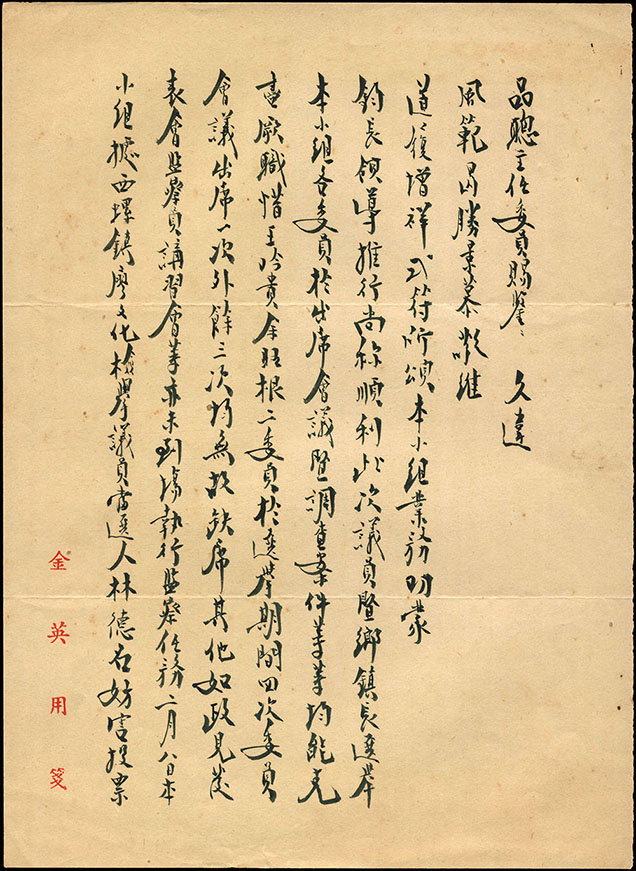 品聰主任委員賜鑒：久違
風範曷勝景慕敬維
道履增祥式符所頌本小組業務叨蒙
鈞長領導推行尚稱順利此次議員暨鄉鎮長選舉
本小組各委員於出席會議暨調查案件等等均能克
盡厥職惜王吟貴余旺根二委員於選舉期間四次委員
會議出席一次外餘三次均無故缺席其他如政見發
表會監察員講習會等亦未到場執行監察任務二月八日本
小組據西螺鎮廖文化檢舉議員當選人林德石妨害投票
金英用箋